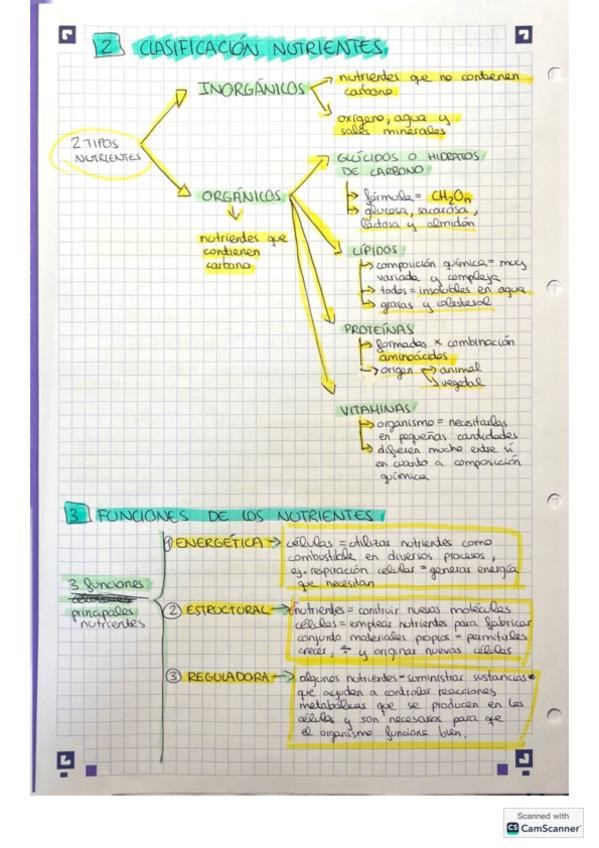 2 CLASIFICACIÓN NUTRIENTES.
2 TIPOS
NUTRIENTES
INORGÁNICOS
nutrientes que no contienen
carbono
oxígeno, agua y
sales minerales
ORGÁNICOS
nutrientes que
contienen
carbono
GLÚCIDOS O HIDRATOS
DE CARBONO
fórmula = CH2On
glucosa, sacarosa,
lactosa y almidón
LÍPIDOS
composición química = muy
variada y compleja
todos = insolubles en agua
grasas y colesterol
PROTEÍNAS
formadas x combinación
aminoácidos
origen animal
vegetal
VITAMINAS
organismo = necesitarlas
en pequeñas cantidades
difieren mucho entre sí
en cuanto a composición
química
3 FUNCIONES DE LOS NUTRIENTES
3 funciones
principales
nutrientes
1 ENERGÉTICA
células = utilizar nutrientes como
combustible en diversos procesos,
ej. respiración celular = generar energía
que necesitan
2 ESTRUCTURAL
nutrientes = construir nuevas moléculas
células = emplear nutrientes para fabricar
conjunto materiales propios = permitirles
crecer, ÷ y originar nuevas células
3 REGULADORA
algunos nutrientes = suministrar sustancias
que ayudan a controlar reacciones
metabólicas que se producen en las
células y son necesarios para que
el organismo funcione bien.
Scanned with
CS CamScanner